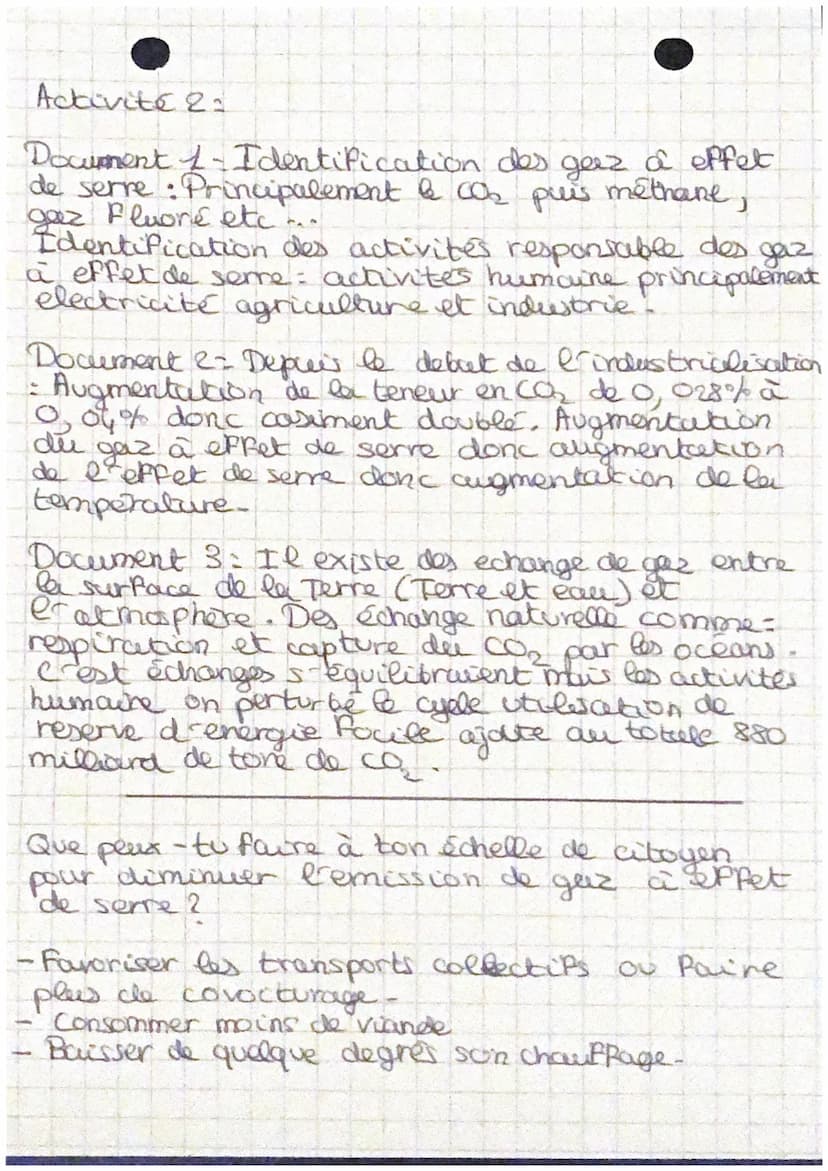 Activité 2:
Document 1 - Identification des gaz à effet
de serre : Principalement le CO2 puis méthane,
gaz fluoré etc ...
Identification des activités responsable des gaz
à effet de serre : activités humaine principalement
electricité agriculture et industrie.
Document 2 - Depuis le debut de l'industrialisation
: Augmentation de la teneur en CO2 de 0,028% à
0,04% donc casiment doublé. Augmentation
du gaz à effet de serre donc augmentation
de l'effet de serre donc augmentation de la
température.
Document 3 : Il existe des echange de gaz entre
la surface de la Terre (Terre et eau) et
l'atmosphère. Des échange naturelle comme :
respiration et capture du CO2 par les océans.
C'est échanges s'équilibraient mais les activités
humaire on perturbé le cycle utilisation de
reserve d'energie focile ajoute au totale 880
milliard de tone de CO2.
Que peux-tu faire à ton échelle de citoyen
pour diminuer l'emission de gaz à effet
de serre ?
- Favoriser les transports collectifs ou faire
plus de covocturage -
- Consommer moins de viande
- Baisser de quelque degrés son chauffage -